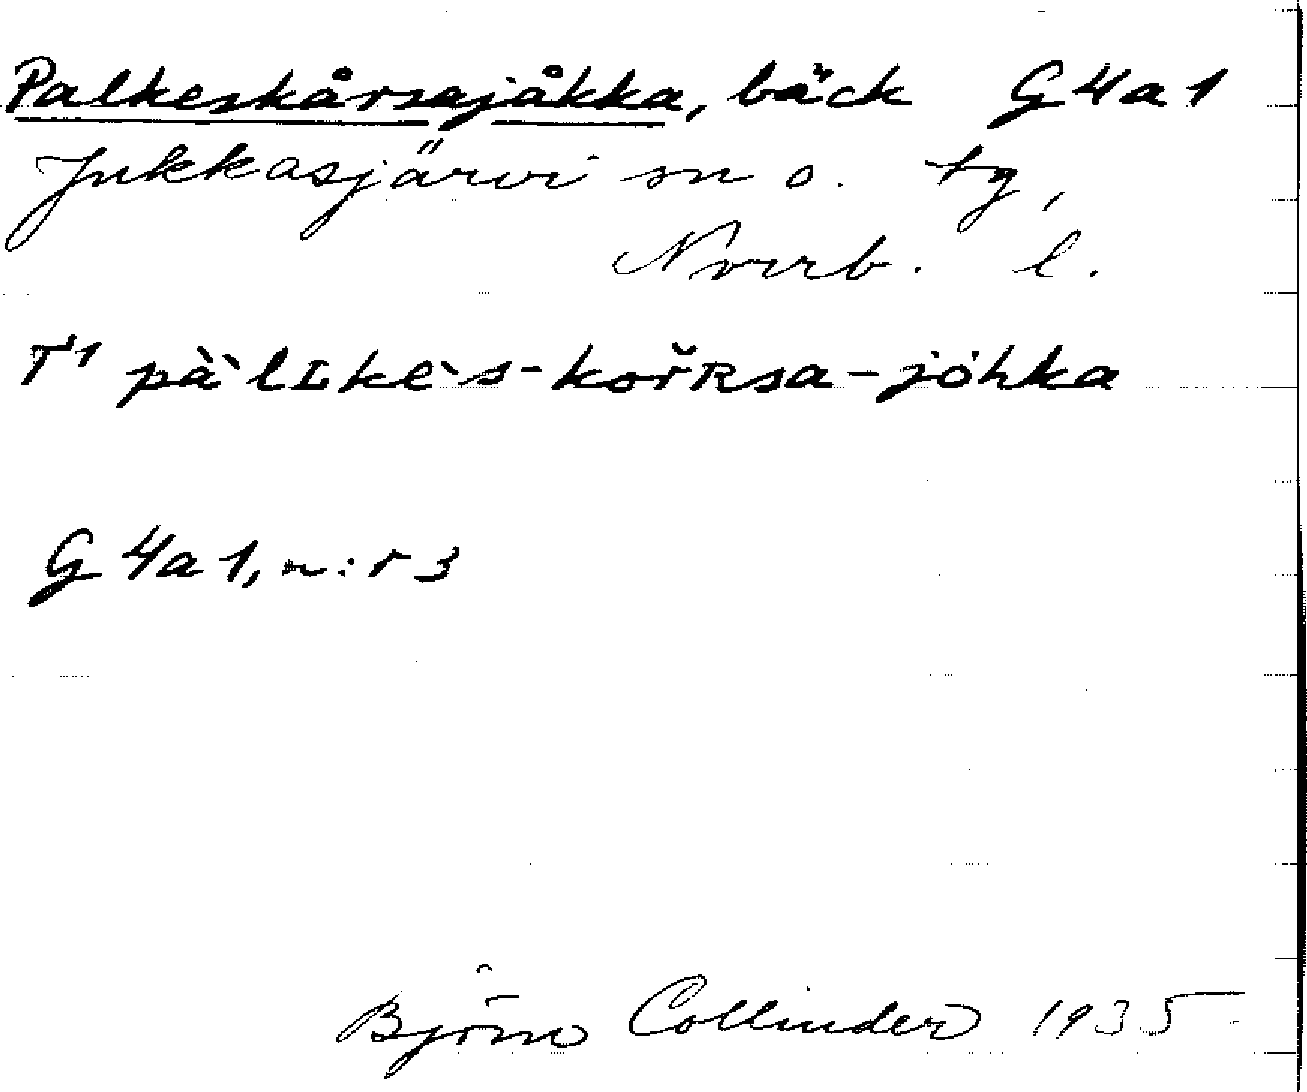 Palkeskårsajåkka, bäck G4a1
Jukkasjärvi sn o. tg,
Norrb. l.
T1 pàˋlɪkeˋs-kořʀsa-jòhka
G4a1, n:r 3
Björn Collinder 1935